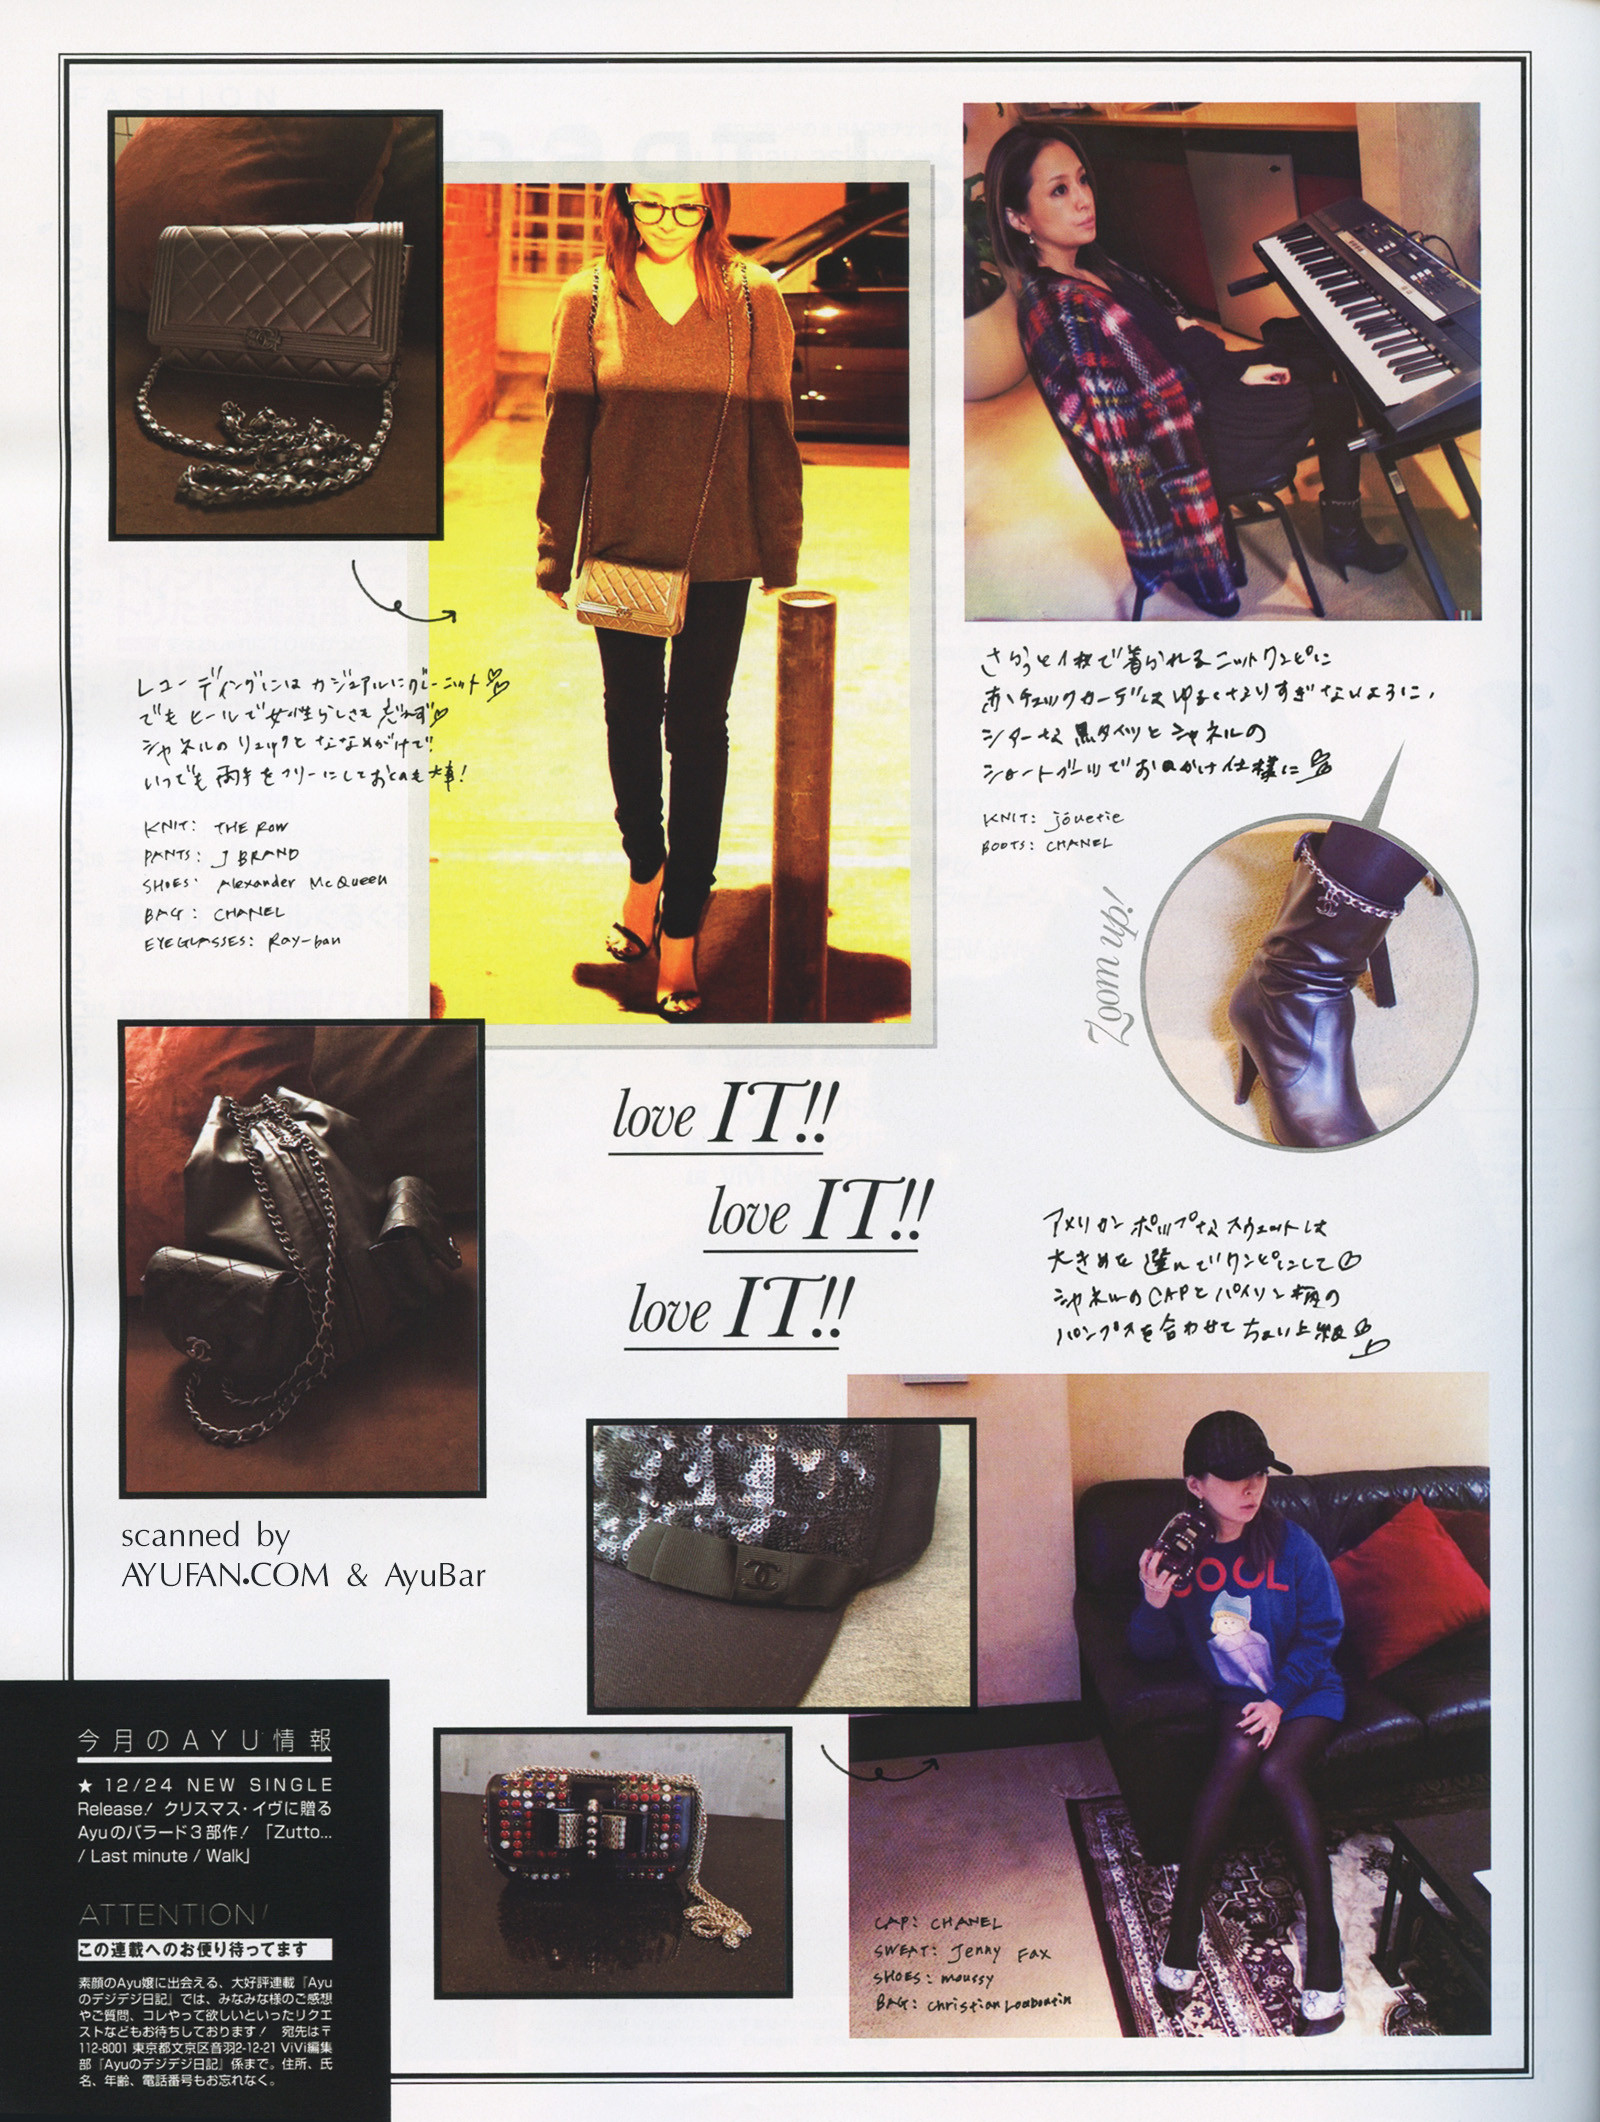 レコーディングにはカジュアルにグレーニット
でもヒールで女性らしさも忘れず
シャネルのリュックとななめがけで
いつでも両手をフリーにしておくのも大事!
KNIT: THE ROW
PANTS: J BRAND
SHOES: Alexander McQueen
BAG: CHANEL
EYEGLASSES: Ray-ban
さらっと1枚で着られるニットワンピに
赤チェックカーデはゆるくなりすぎないように、
シアーな黒タイツとシャネルの
ショートブーツでおでかけ仕様に
KNIT: jouetie
BOOTS: CHANEL
Zoom up!
love IT!!
love IT!!
love IT!!
アメリカンポップなスウェットは
大きめを選んでワンピにして
シャネルのCAPとパイソン柄の
パンプスを合わせてちょい上級
COOL
CAP: CHANEL
SWEAT: Jenny Fax
SHOES: moussy
BAG: Christian Louboutin
scanned by
AYUFAN.COM & AyuBar
今月のAYU情報
★ 12/24 NEW SINGLE
Release! クリスマス・イヴに贈る
Ayuのバラード3部作! 「Zutto...
/ Last minute / Walk」
ATTENTION!
この連載へのお便り待ってます
素顔のAyu嬢に出会える、大好評連載『Ayu
のデジデジ日記』では、みなみな様のご感想
やご質問、コレやって欲しいといったリクエ
ストなどもお待ちしております! 宛先は〒
112-8001 東京都文京区音羽2-12-21 ViVi編集
部『Ayuのデジデジ日記』係まで。住所、氏
名、年齢、電話番号もお忘れなく。